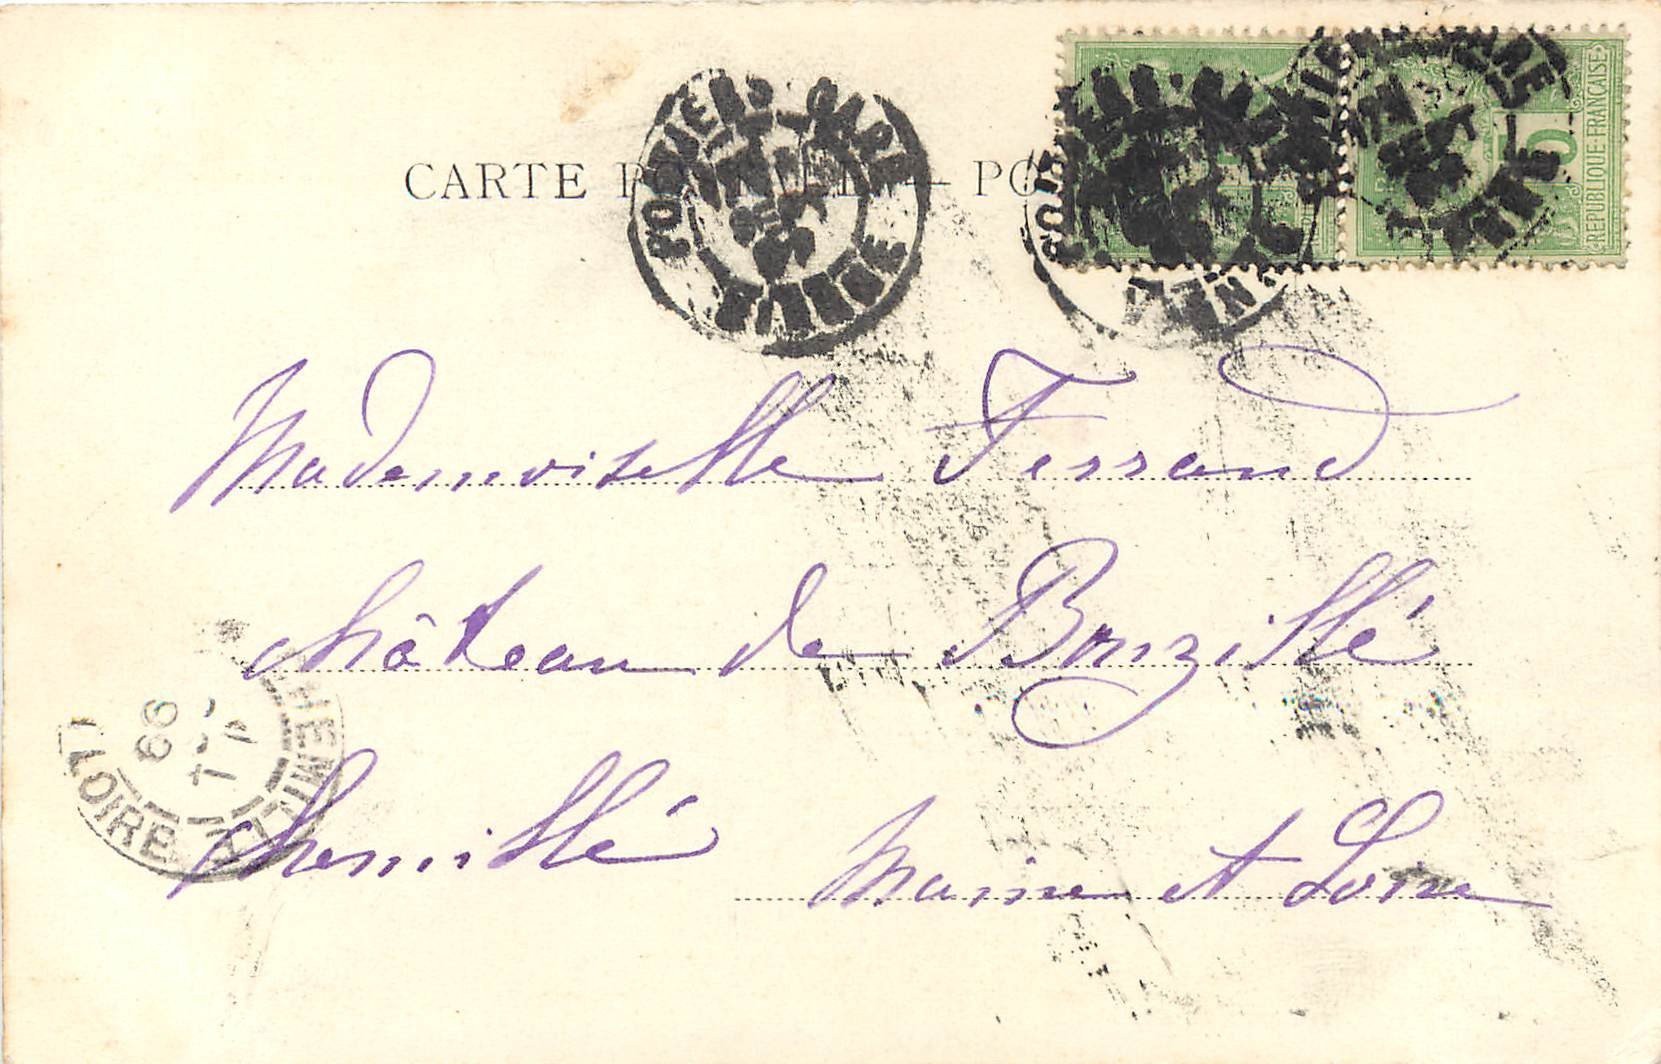 CARTE
POITIERS GARE
VIENNE
SEPT
99
5
REPUBLIQUE-FRANÇAISE
Mademoiselle Ferrand
château de Bouzillé
Chemillé Maine et Loire
99
LOIRE